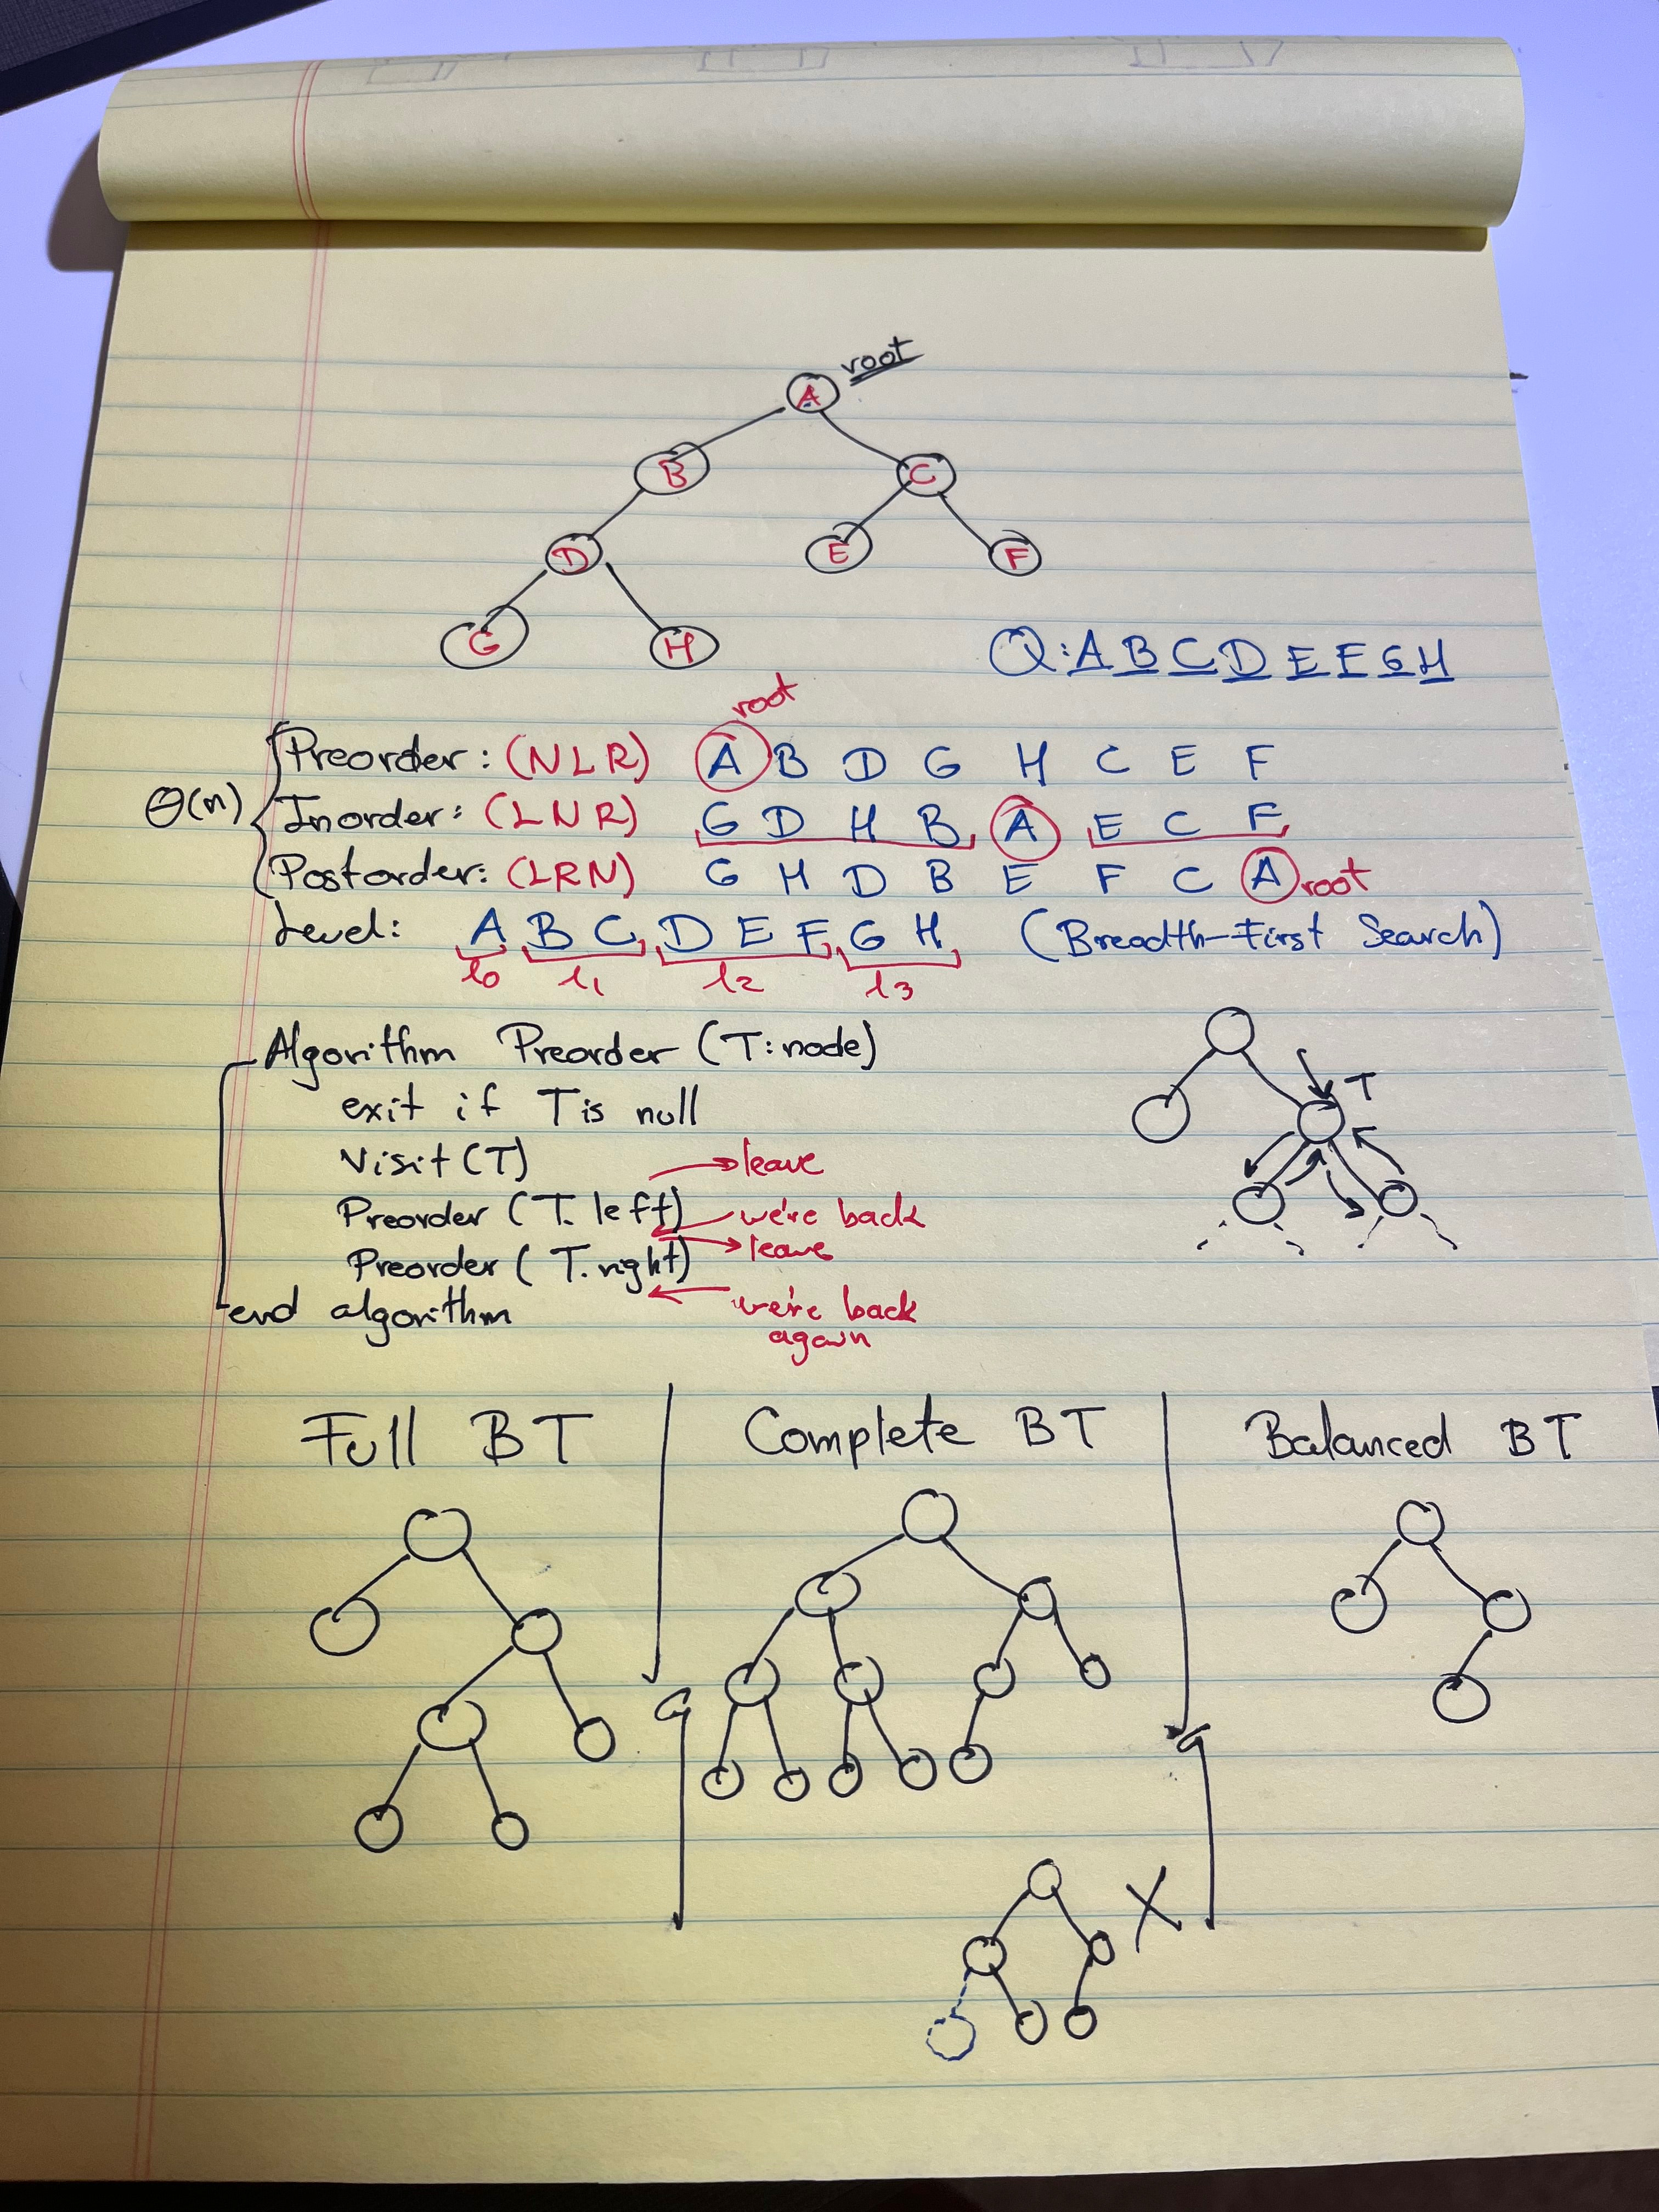 root
A
B C
D E F
G H
Q: A B C D E F G H
root
Preorder: (NLR) A B D G H C E F
Θ(n)
Inorder: (LNR) G D H B A E C F
Postorder: (LRN) G H D B E F C A root
Level: A B C D E F G H (Breadth-First Search)
l0 l1 l2 l3
Algorithm Preorder (T: node)
exit if T is null
T
Visit (T)
leave
Preorder (T. left) we're back
leave
Preorder (T. right)
end algorithm we're back
again
Full BT Complete BT Balanced BT
X